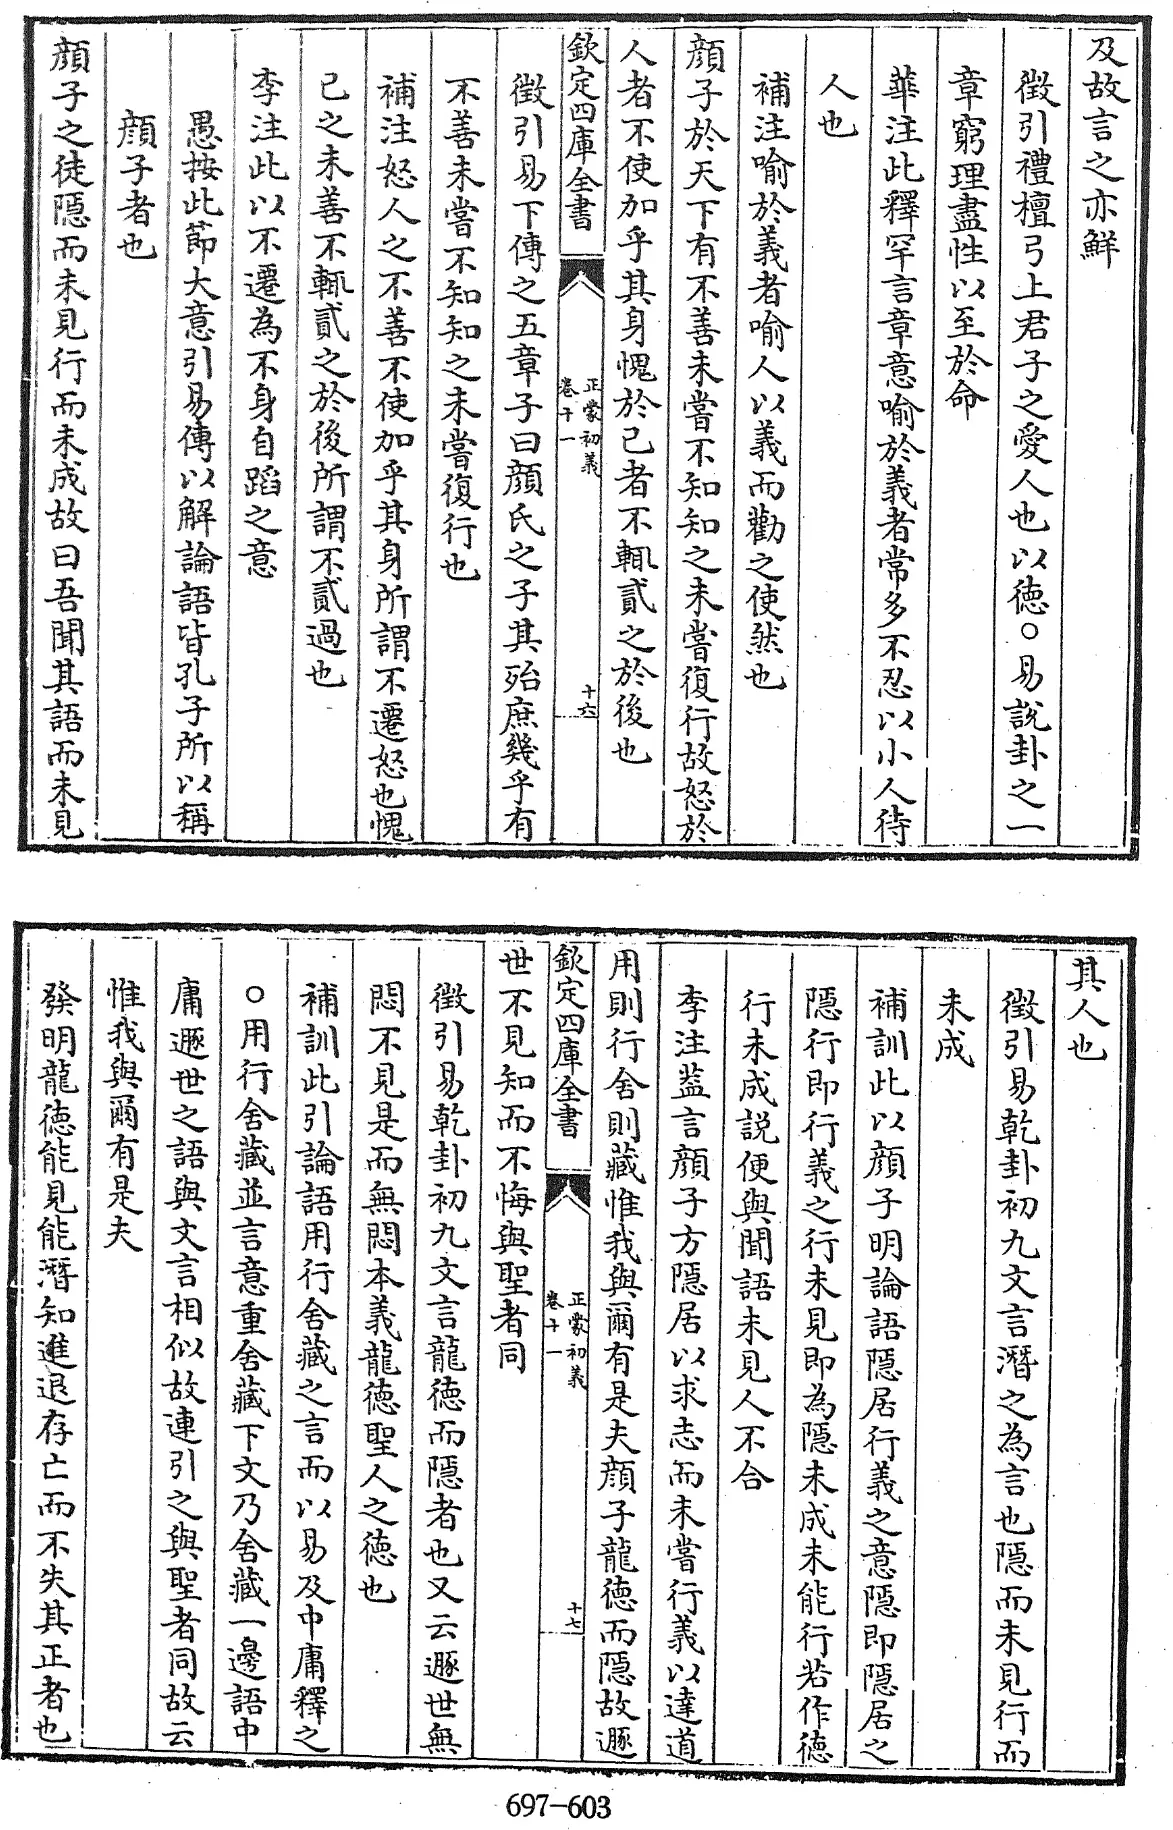 及故言之亦鮮
徵引禮檀弓上君子之愛人也以德○易說卦之一
章窮理盡性以至於命
華注此釋罕言章意喻於義者常多不忍以小人待
人也
補注喻於義者喻人以義而勸之使然也
顔子於天下有不善未嘗不知知之未嘗復行故怒於
人者不使加乎其身愧於己者不輒貳之於後也
欽定四庫全書
正蒙初義
卷十一
十六
徵引易下傳之五章子曰顔氏之子其殆庶幾乎有
不善未嘗不知知之未嘗復行也
補注怒人之不善不使加乎其身所謂不遷怒也愧
己之未善不輒貳之於後所謂不貳過也
李注此以不遷為不身自蹈之意
愚按此節大意引易傳以解論語皆孔子所以稱
顔子者也
顔子之徒隱而未見行而未成故曰吾聞其語而未見
其人也
徵引易乾卦初九文言潛之為言也隱而未見行而
未成
補訓此以顔子明論語隱居行義之意隱即隱居之
隱行即行義之行未見即為隱未成未能行若作德
行未成説便與聞語未見人不合
李注葢言顔子方隱居以求志而未嘗行義以達道
用則行舍則藏惟我與爾有是夫顔子龍德而隱故遯
欽定四庫全書
正蒙初義
卷十一
十七
世不見知而不悔與聖者同
徵引易乾卦初九文言龍德而隱者也又云遯世無
悶不見是而無悶本義龍德聖人之德也
補訓此引論語用行舍藏之言而以易及中庸釋之
○用行舍藏並言意重舍藏下文乃舍藏一邊語中
庸遯世之語與文言相似故連引之與聖者同故云
惟我與爾有是夫
發明龍德能見能潛知進退存亡而不失其正者也
697-603